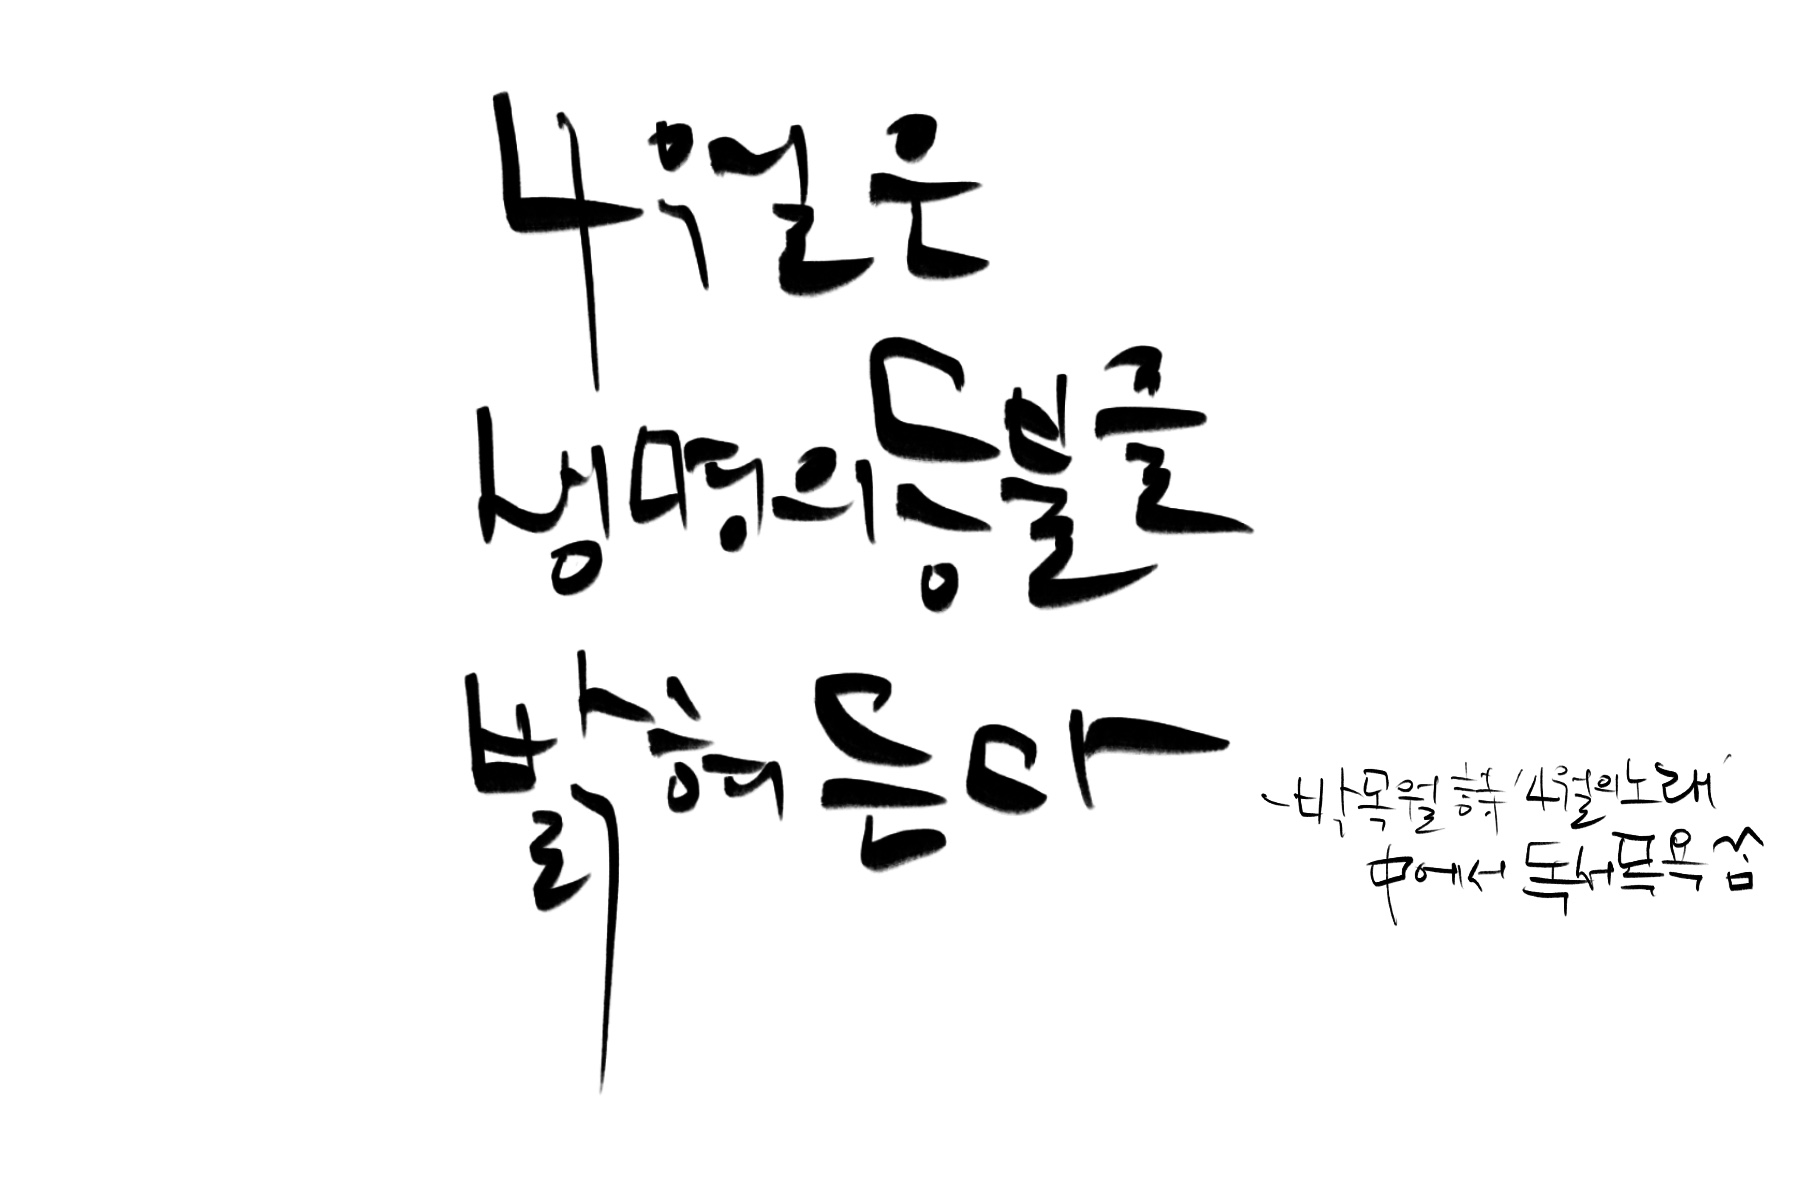 4월은
생명의 등불을
밝혀 든다
-박목월 詩 '4월의 노래'
中에서 독서목욕 씀